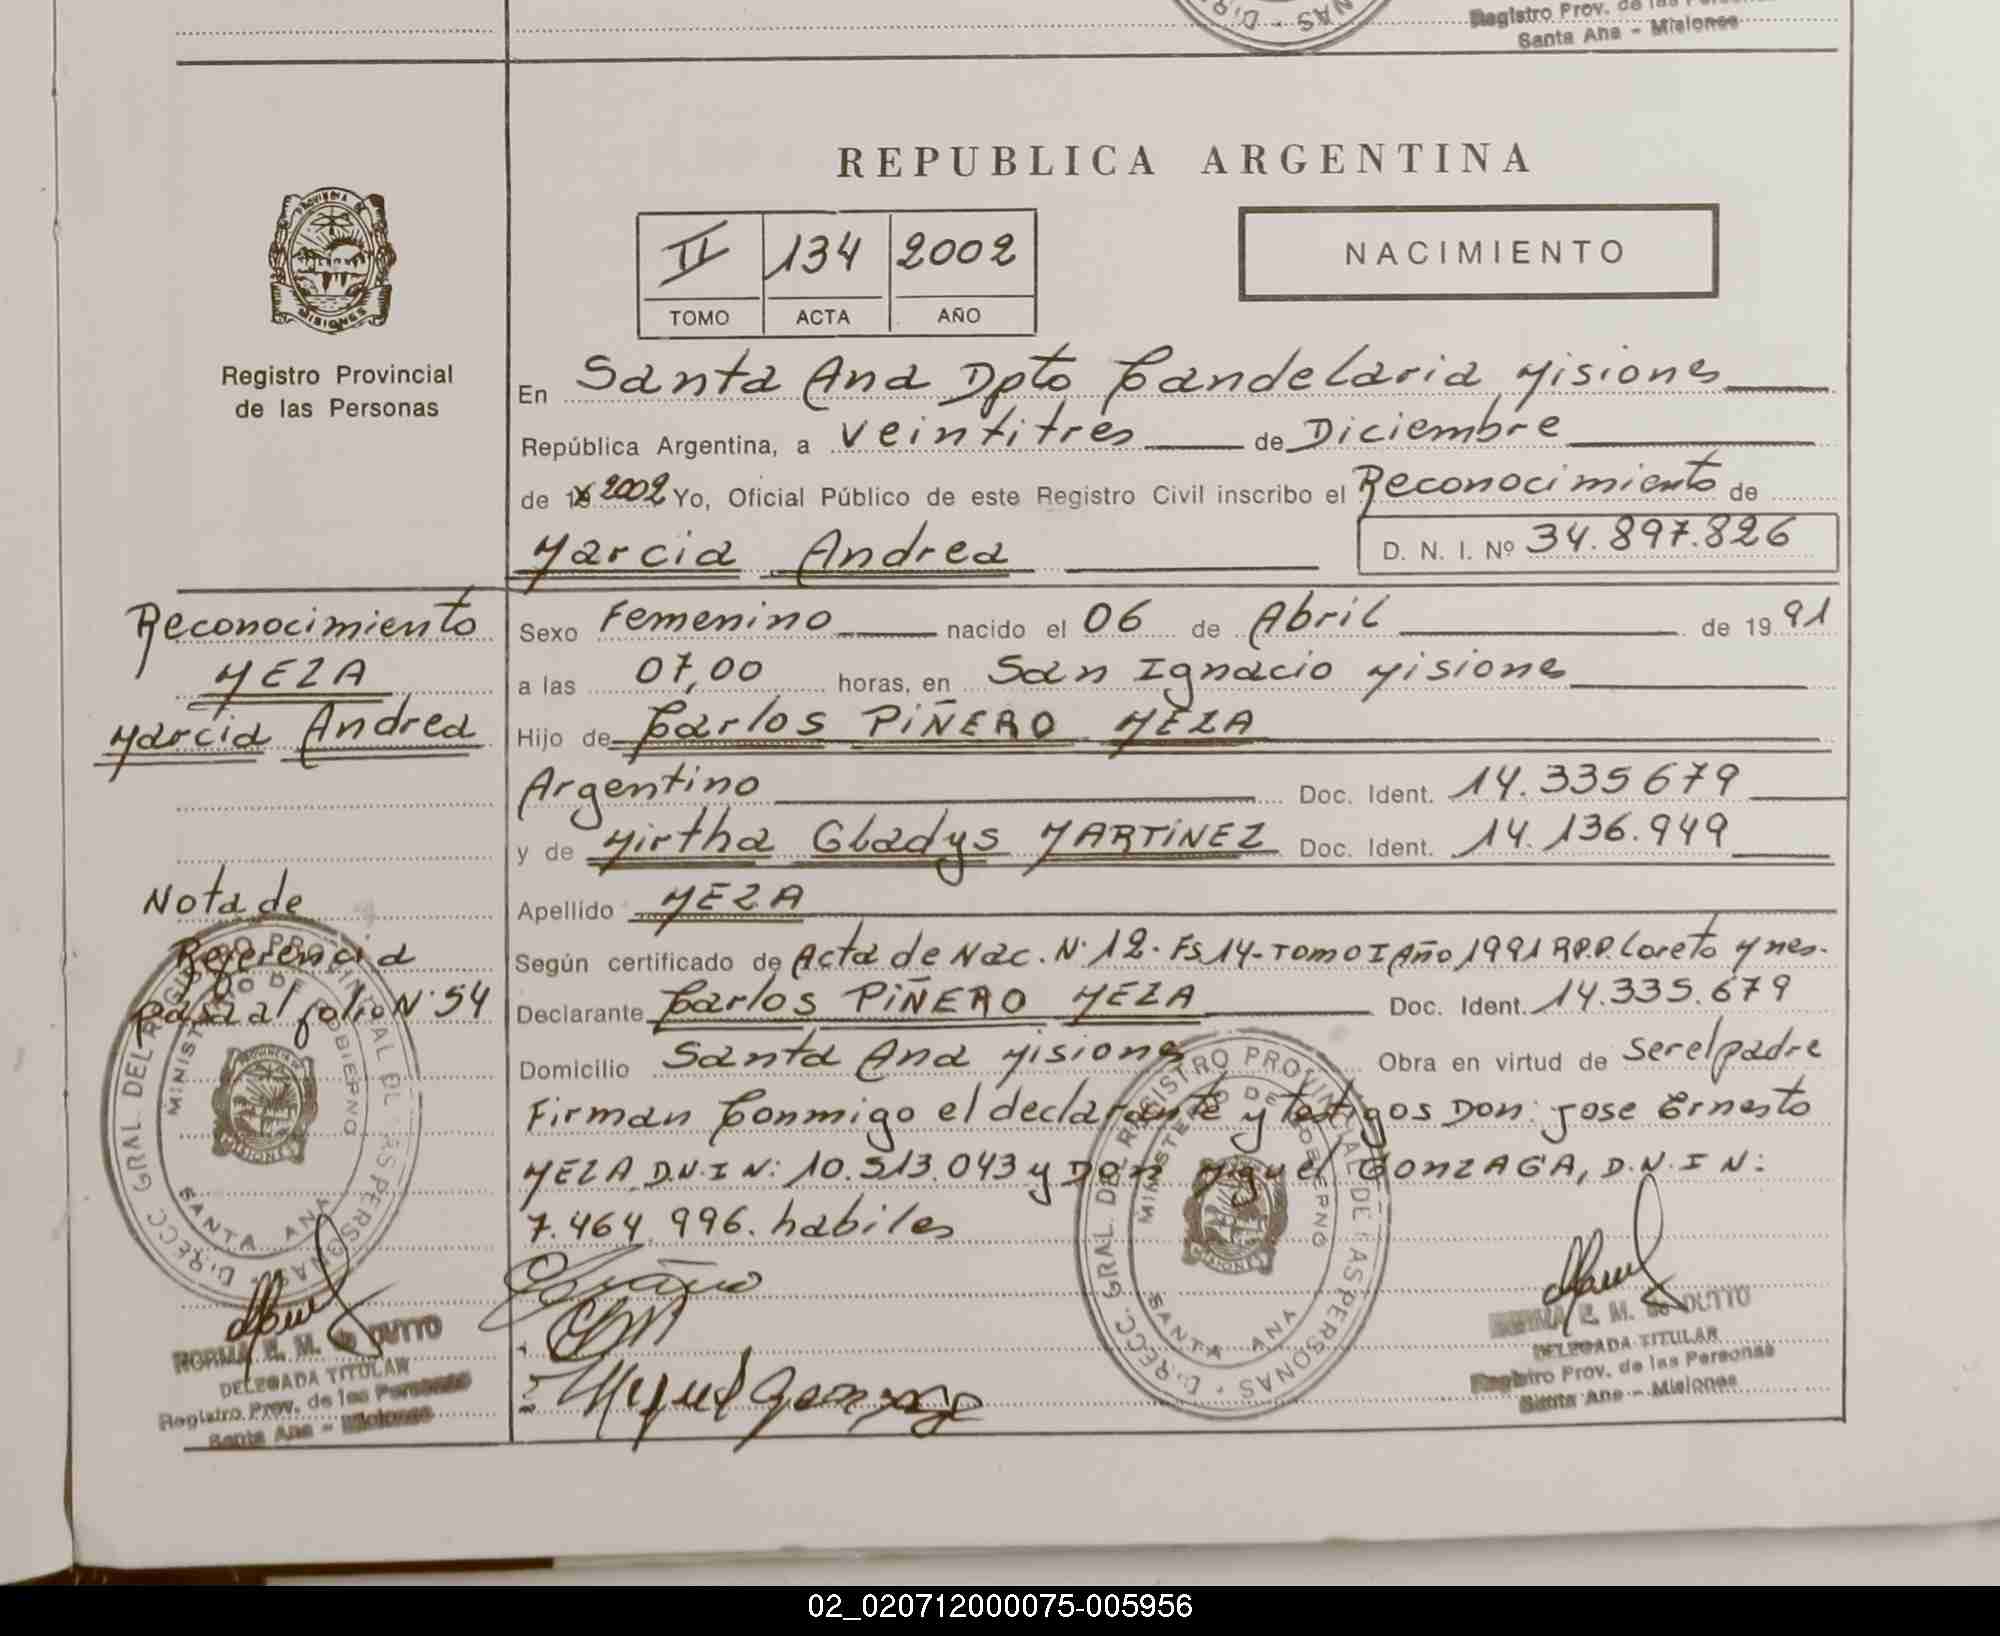 Registro Prov. de las Personas
Santa Ana - Misiones
REPUBLICA ARGENTINA
II 134 2002
TOMO ACTA AÑO
NACIMIENTO
PROVINCIA DE
MISIONES
Registro Provincial
de las Personas
En Santa Ana Dpto Candelaria Misiones
República Argentina, a veintitres de Diciembre
de 19 2002 Yo, Oficial Público de este Registro Civil inscribo el Reconocimiento de
Marcia Andrea D. N. I. Nº 34.897.826
Reconocimiento
MEZA
Marcia Andrea
Sexo Femenino nacido el 06 de Abril de 19 91
a las 07,00 horas, en San Ignacio Misiones
Hijo de Carlos PIÑERO MEZA
Argentino Doc. Ident. 14.335679
y de Mirtha Gladys MARTINEZ Doc. Ident. 14.136.949
Apellido MEZA
Según certificado de Acta de Nac. N·12· Fs 14- TOMO I Año 1991 R.P.P. Loreto Mnes.
Declarante Carlos PIÑERO MEZA Doc. Ident. 14.335.679
Domicilio Santa Ana Misiones Obra en virtud de Ser el padre
Firman Conmigo el declarante y testigos Don: Jose Ernesto
MEZA D.N.I N: 10.513.043 y Don Miguel GONZAGA, D.N.I N:
7.464.996. habiles
Nota de
Referencia
pasa al folio N·54
DIRECC. GRAL. DEL REGISTRO PROVINCIAL DE LAS PERSONAS
MINISTERIO DE GOBIERNO
SANTA ANA
DIRECC. GRAL. DEL REGISTRO PROVINCIAL DE LAS PERSONAS
MINISTERIO DE GOBIERNO
SANTA ANA
Miguel Gonzaga
NORMA E. M. de DUTTO
DELEGADA TITULAR
Registro Prov. de las Personas
Santa Ana - Misiones
NORMA E. M. de DUTTO
DELEGADA TITULAR
Registro Prov. de las Personas
Santa Ana - Misiones
02_020712000075-005956